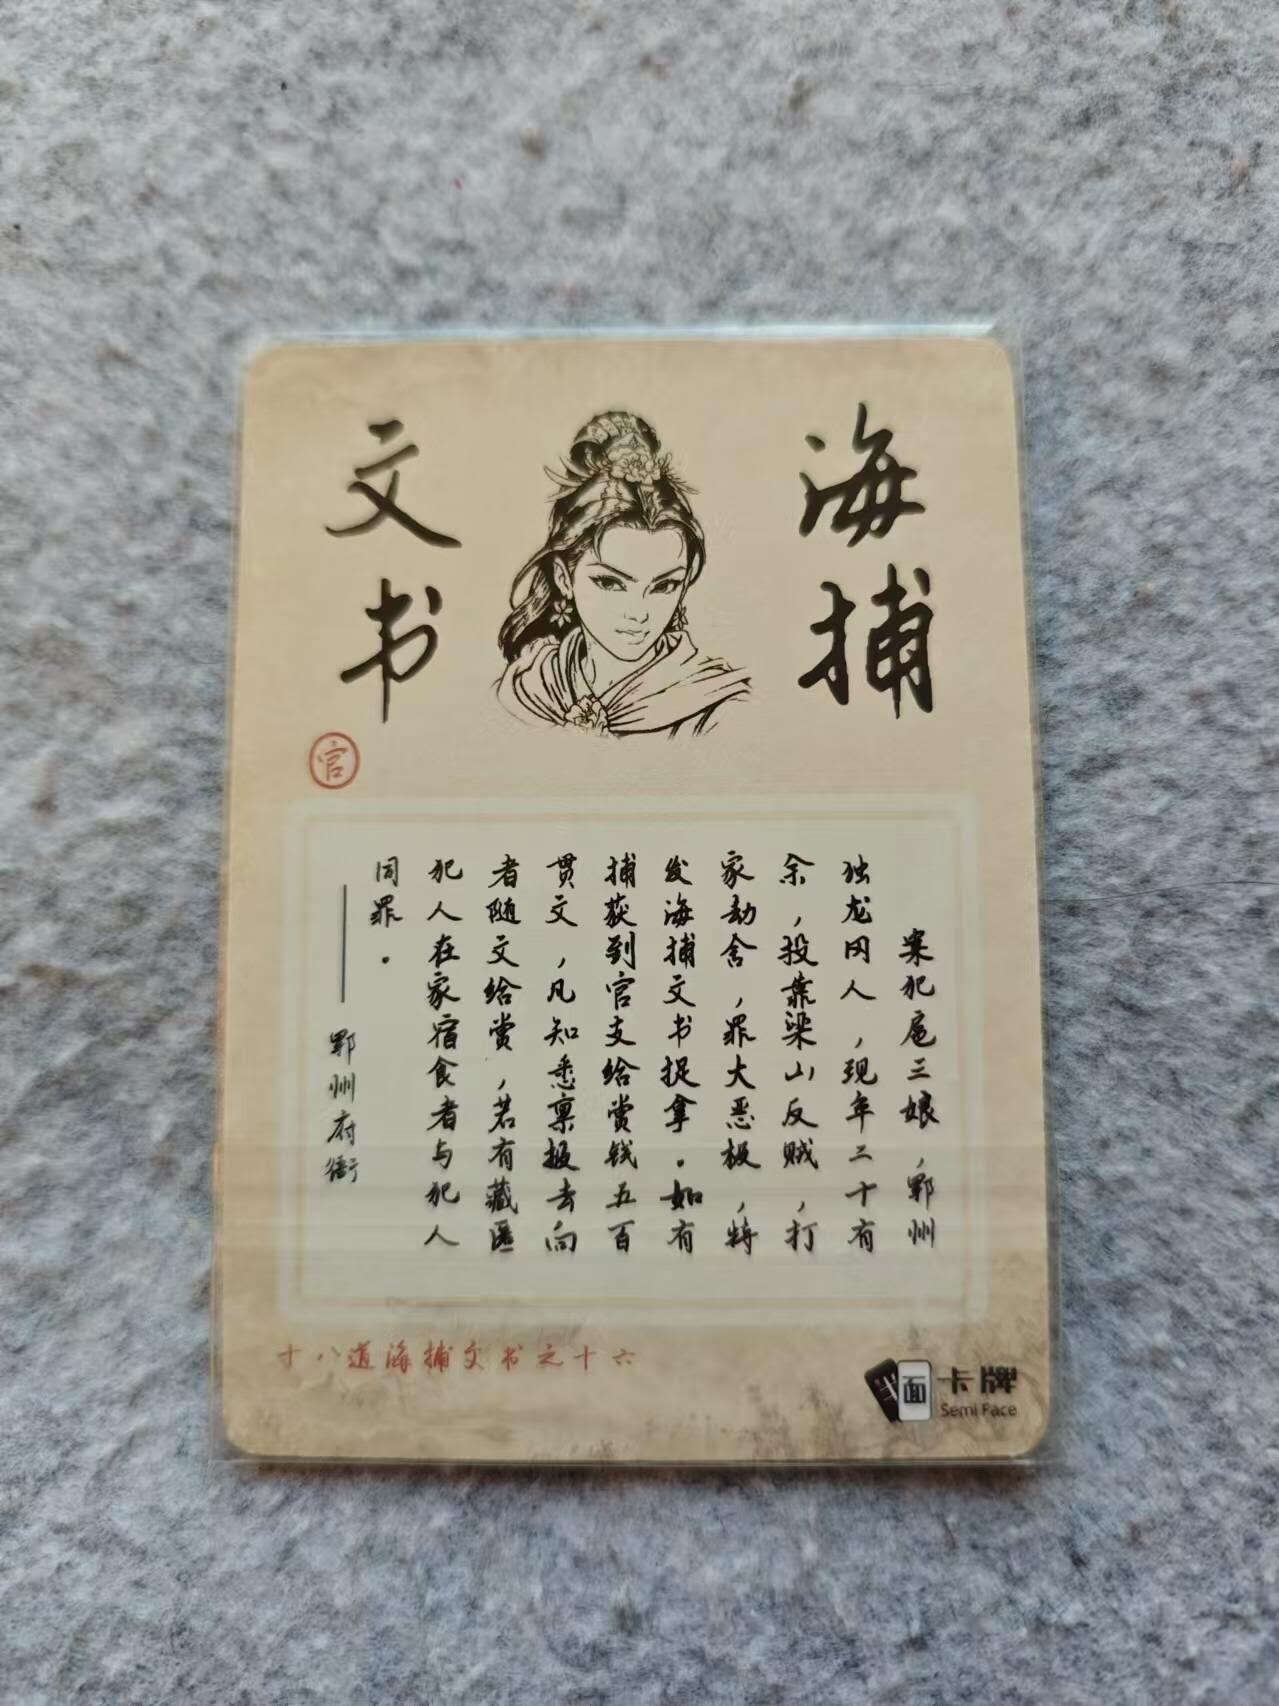 海捕
文书
官
案犯扈三娘，郓州
独龙冈人，现年二十有
余，投靠梁山反贼，打
家劫舍，罪大恶极，特
发海捕文书捉拿。如有
捕获到官支给赏钱五百
贯文，凡知悉禀报去向
者随文给赏，若有藏匿
犯人在家宿食者与犯人
同罪。
——郓州府衙
十八道海捕文书之十六
半面卡牌
Semi Face